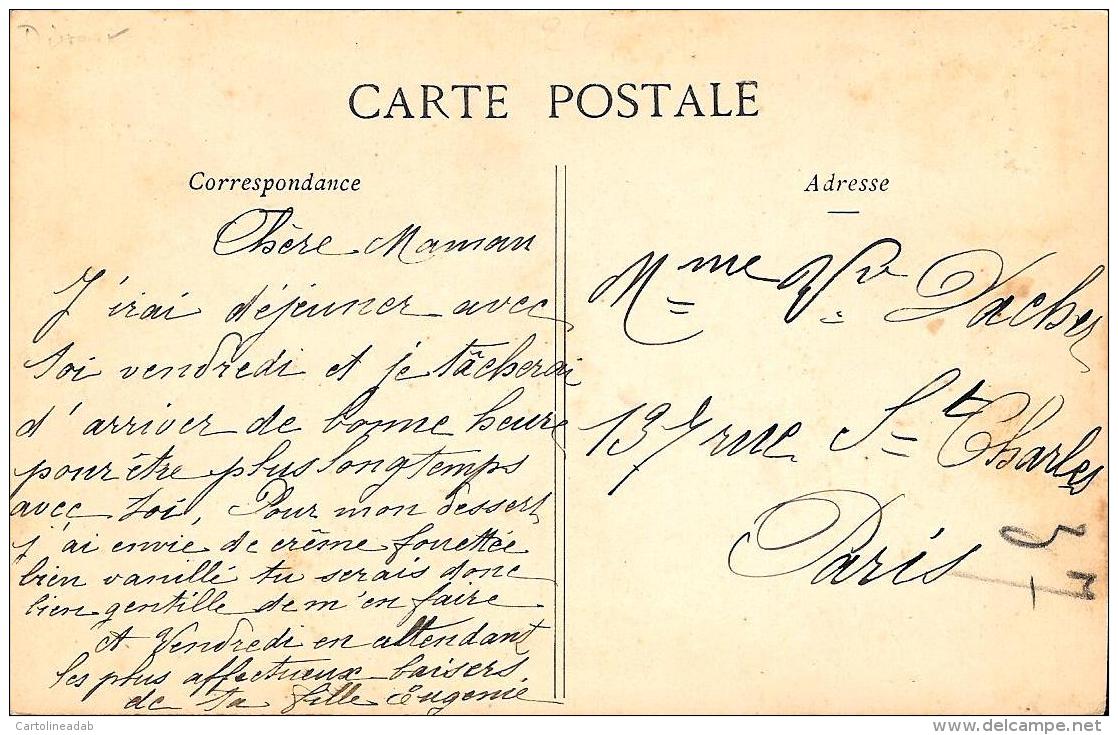 CARTE POSTALE
Correspondance
Chère Maman
J'irai déjeuner avec
toi vendredi et je tâcherai
d'arriver de bonne heure
pour être plus longtemps
avec toi, Pour mon dessert
j'ai envie de crême fouettée
bien vanillé tu serais donc
bien gentille de m'en faire
A Vendredi en attendant
les plus affectueux baisers
de ta fille Eugenie
Adresse
Mme Vve Dacher
137 rue St Charles
Paris
Cartolineadab
www.delcampe.net